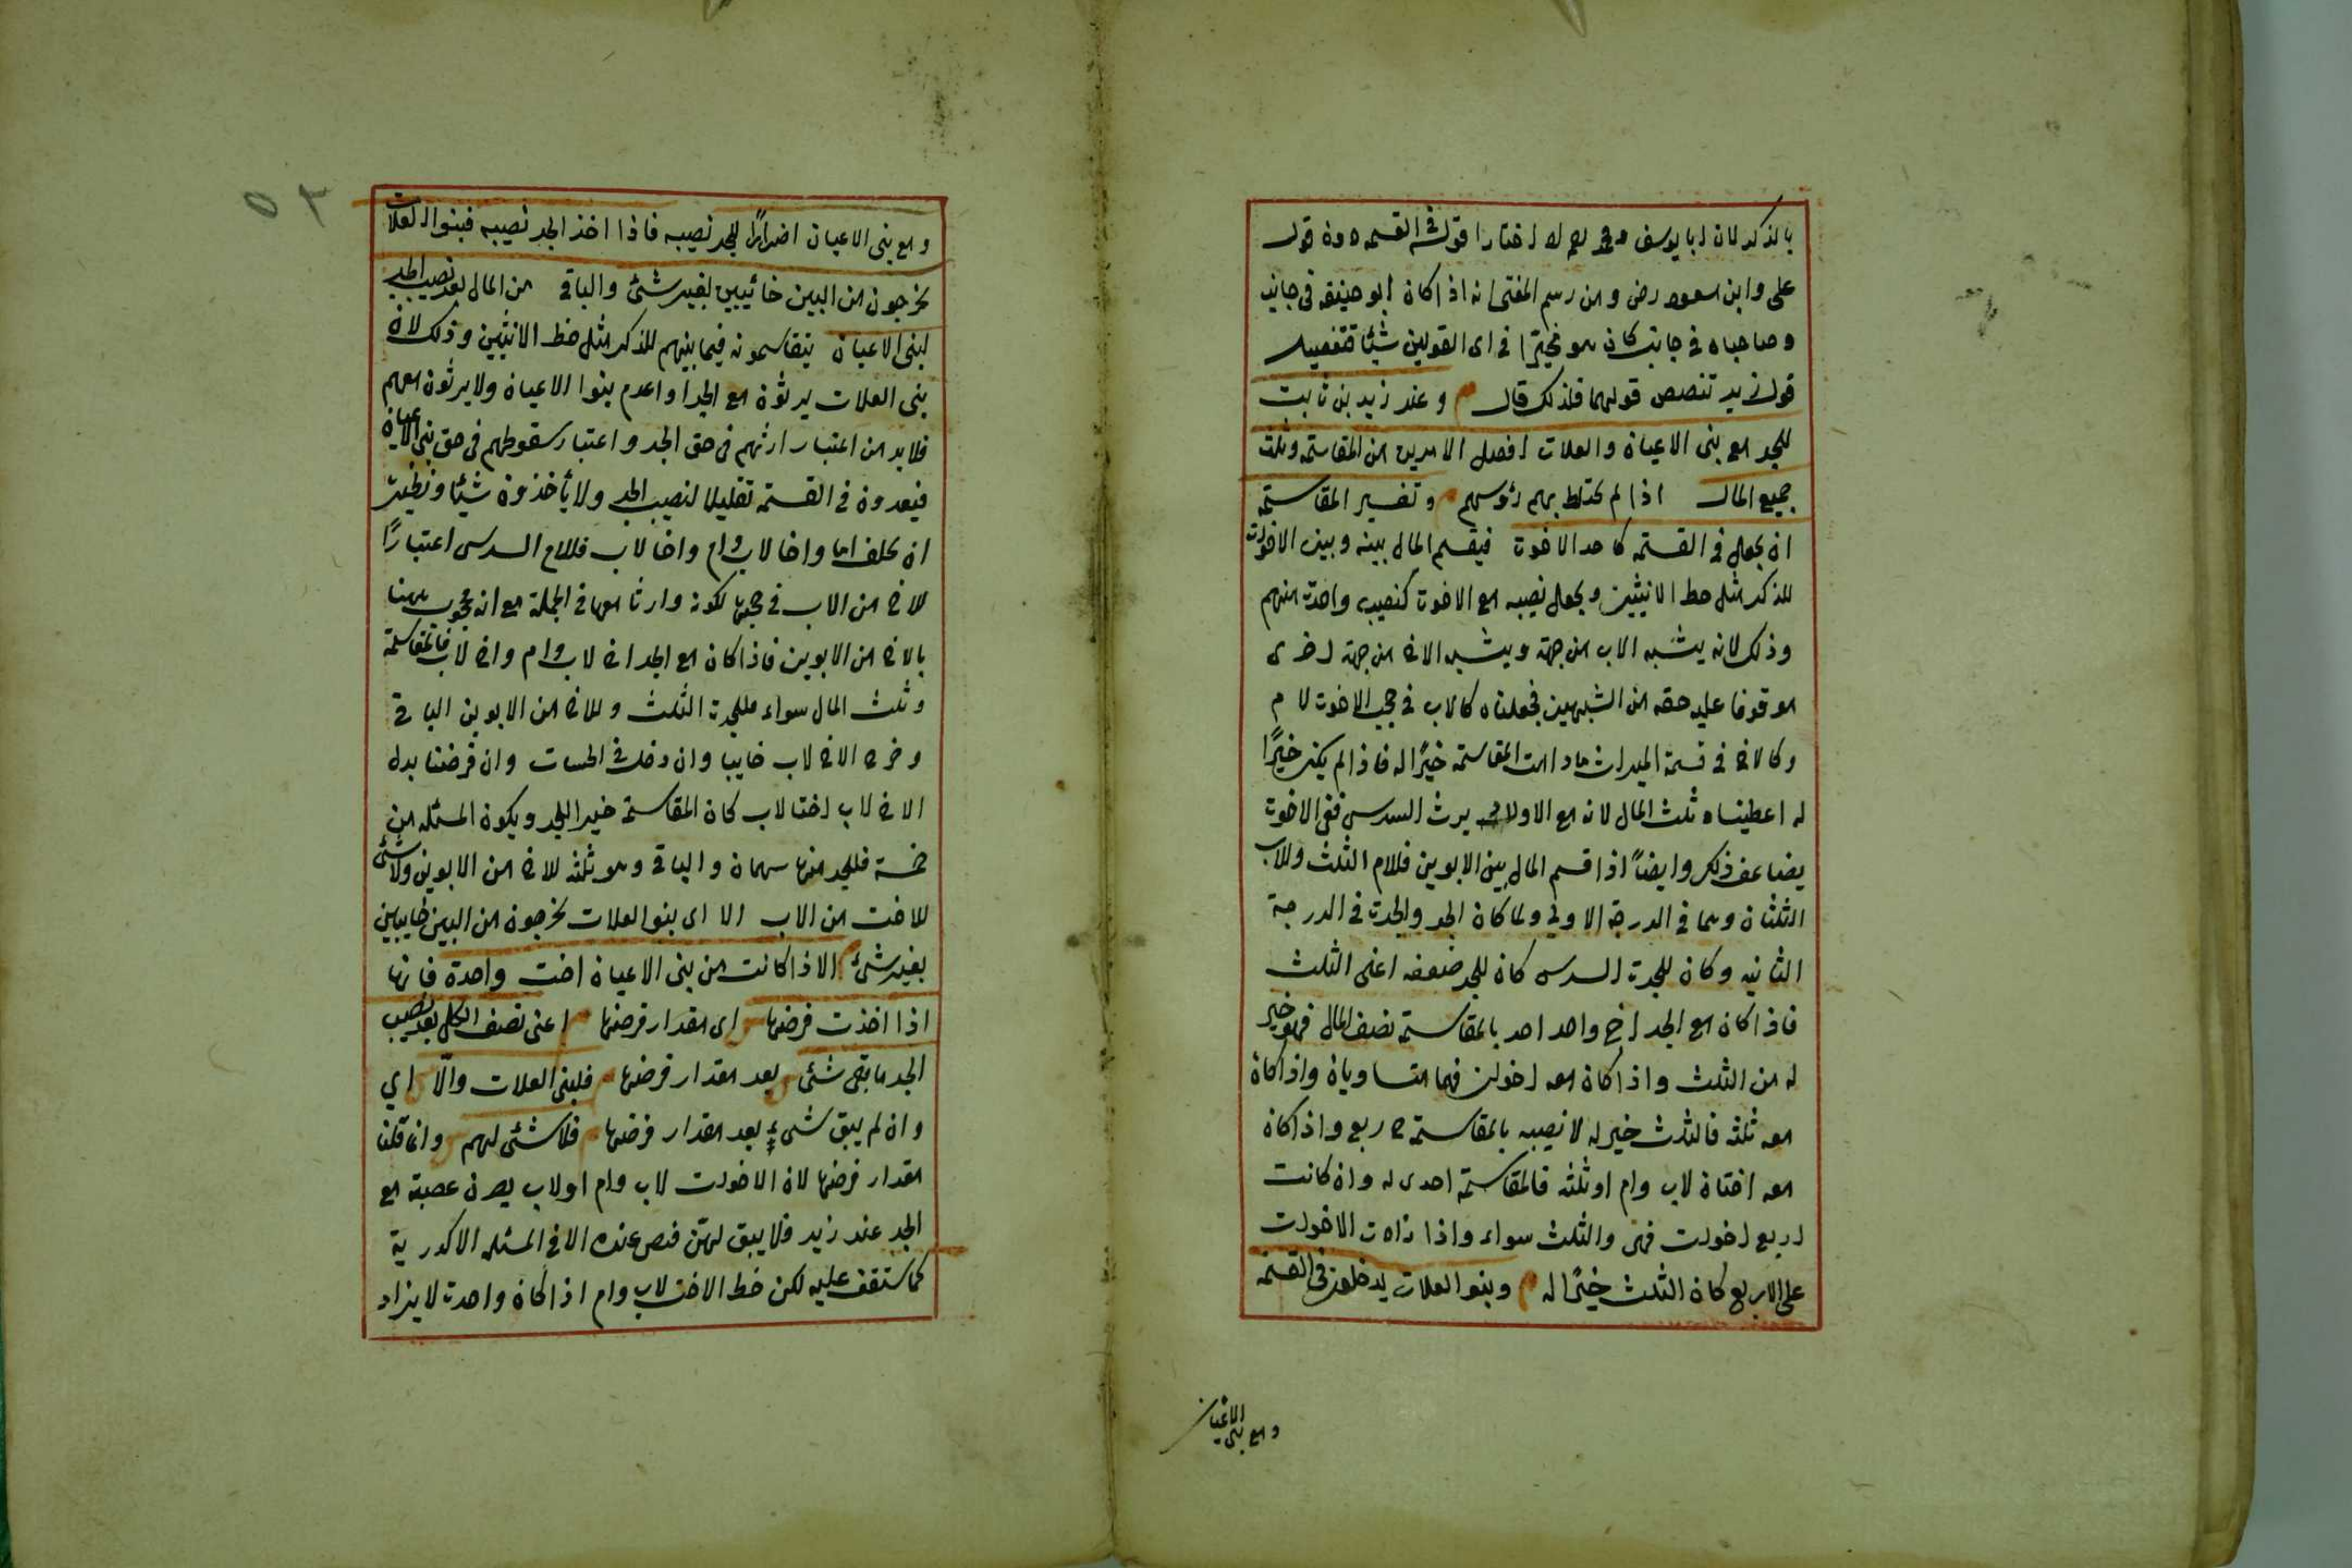 بالذكر لان ابا يوسف ومحمد رحمهم الله اختارا قوله في القسمه دون قول
على وابن مسعود رض ومن رسم المفتى انه اذا كان ابو حنيفه فى جانب
وصاحباه فى جانب كان هو مخيرا فى اى القولين شيئا فتفصيل
قول زيد تنصص قولهما فلذلك قال م وعند زيد بن ثابت
للجد مع بنى الاعيان والعلات افضل الامرين من المقاسمة وثلث
جميع المال اذا لم يختلط بهم رؤسهم وتفسير المقاسمة
ان يجعل فى القسمة كاحد الاخوة فيقسم المال بينه وبين الاخوات
للذكر مثل حظ الانثيين ويجعل نصيبه مع الاخوة كنصيب واحد منهم
وذلك لانه يشبه الاب من جهة ويشبه الاخ من جهة اخرى
موقوفا عليه حقه من الشبهين فجعلناه كالاب فى حجب الاخوة لام
وكالاخ فى قسمة الميراث مادامت المقاسمة خيرًا له فاذا لم يكن خيرًا
له اعطيناه ثلث المال لانه مع الاولاد يرث السدس ففى الاخوة
يضاعف ذلك وايضاً اذا قسم المال بين الابوين فللام الثلث وللاب
الثلثان وهما فى الدرجة الاولى ولما كان الجد والجدة فى الدرجة
الثانيه وكان للجدة السدس كان للجد ضعفه اعنى الثلث
فاذا كان مع الجد اخ واحد احد بالمقاسمة نصف المال فهو خير
له من الثلث واذا كان معه اخوان فهما متساويان واذا كان
معه ثلثه فالثلث خير له لا نصيبه بالمقاسمة ح ربع واذا كان
معه اختان لاب وام او ثلثه فالمقاسمة احدى له وان كانت
اربع اخوات فهى والثلث سواء واذا زادت الاخوات
على الاربع كان الثلث خيرًا له م وبنو العلات يدخلون فى القسمة
ومع بنى الاعيان
٥٢
ومع بنى الاعيان اضرارًا للجد نصيبه فاذا اخذ الجد نصيبه فبنوا العلات
يخرجون من البين خائيبين بغير شئ والباقى من المال بعد نصيب الجد
لبنى الاعيان يتقاسمونه فيما بينهم للذكر مثل حظ الانثيين وذلك لان
بنى العلات يرثون مع الجد اواعدم بنوا الاعيان ولا يرثون معهم
فلابد من اعتبار ارثهم فى حق الجد واعتبار سقوطهم فى حق بنى الاعيان
فيعدون فى القسمة تقليلا لنصيب الجد ولا يأخذون شيئا ونظيره
ان يخلف اما واخا لاب وام واخا لاب فللام السدس اعتبارًا
للاخ من الاب فى حجبها لكونه وارثا معها فى الجملة مع انه محجوب ههنا
بالاخ من الابوين فاذا كان مع الجد اخ لاب وام واخ لاب فالمقاسمة
وثلث المال سواء فللجد الثلث وللاخ من الابوين الباقى
وخرج الاخ لاب خايبا وان دخل فى الحساب وان فرضنا بدل
الاخ لاب اختا لاب كان المقاسمة خيرا للجد ويكون المسئله من
خمسة فللجد منها سهمان والباقى وهو ثلثه للاخ من الابوين ولا شئ
للاخت من الاب الا اى بنو العلات يخرجون من البين خايبين
بغير شئ الا اذا كانت من بنى الاعيان اخت واحدة فانها
اذا اخذت فرضها اى مقدار فرضها اعنى نصف الكل بعد نصيب
الجد ما بقى شئ بعد مقدار فرضها فلبنى العلات والّا اي
وان لم يبق شيء بعد مقدار فرضها فلا شئى لهم وانما قلنا
مقدار فرضها لان الاخوات لاب وام او لاب يصرن عصبة مع
الجد عند زيد فلا يبق لهن فرض عنده الا فى المسئله الاكدرية
كما ستقف عليه لكن حظ الاخت لاب وام اذا كان واحدة لا يزاد